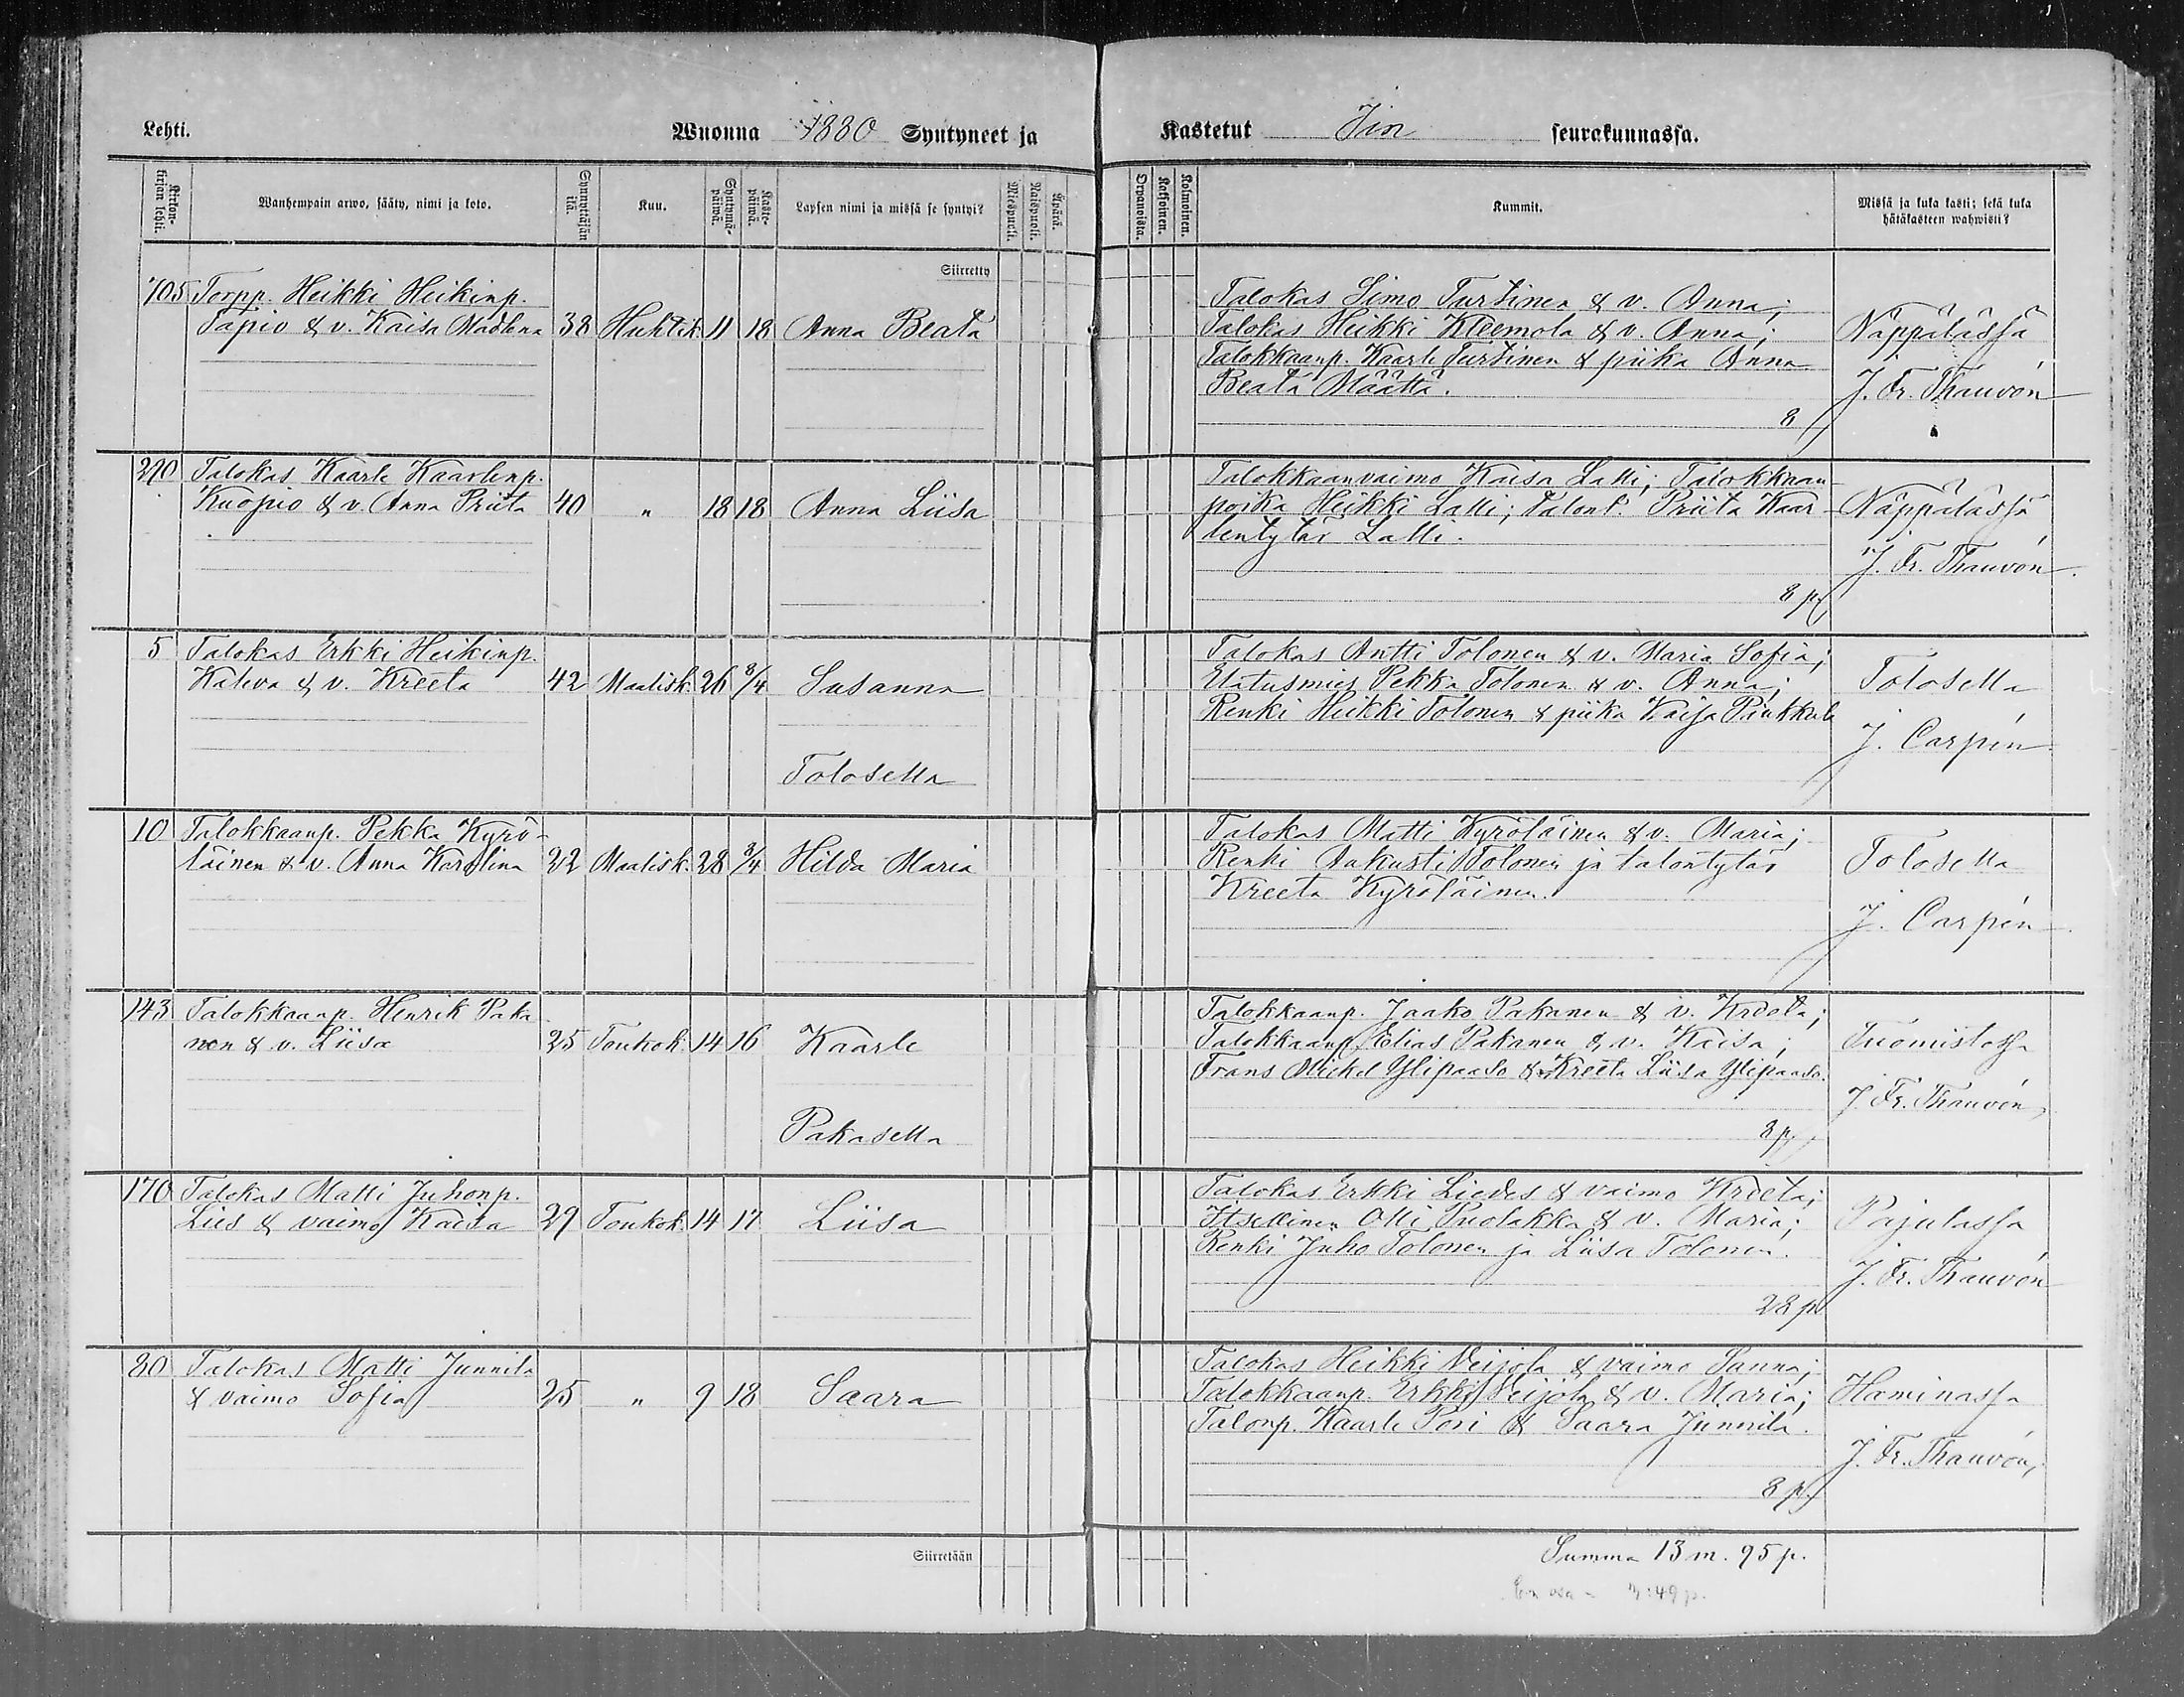 Lehti.
Wuonna 1880 Syntyneet ja
Kastetut Iin seurakunnassa.
Kirkon-kirjan lehti.
Wanhempain arwo, sääty, nimi ja koto.
Synnyttäjän ikä.
Kuu.
Syntymä-päiwä.
Kaste-päiwä.
Lapsen nimi ja missä se syntyi?
Miespuoli.
Naispuoli.
Äpärä.
Orpanoista.
Kaksoinen.
Kolmoinen.
Kummit.
Missä ja kuka kasti; sekä kuka
hätäkasteen wahwisti?
Siirretty
705 Torpp. Heikki Heikinp.
Tapio & v. Kaisa Madlena 38 Huhtik. 11 18 Anna Beata
Talokas Simo Turtinen & v. Anna;
Talokas Heikki Kleemola & v. Anna;
Talokkaanp. Kaarle Turtinen & piika Anna
Beata Määttä.
8
Näppälässä
J. Fr. Thauvón
290 Talokas Kaarle Kaarlenp.
Kuopio & v. Anna Priita 40 " 18 18 Anna Liisa
Talokkaanvaimo Kaisa Lalli; Talokkaan
poika Heikki Lalli; talont. Priita Kaar-
lentytär Lalli.
8 p.
Näppälässä
J. Fr. Thauvón.
5 Talokas Erkki Heikinp.
Kaleva & v. Kreeta 42 Maalisk. 26 3/4 Susanna
Tolosella
Talokas Antti Tolonen & v. Maria Sofia;
Elatusmies Pekka Tolonen & v. Anna;
Renki Heikki Tolonen & piika Kaisa Paukkula
Tolosella
J. Carpén
10 Talokkaanp. Pekka Kyrö-
läinen & v. Anna Karolina 22 Maalisk. 28 3/4 Hilda Maria
Talokas Matti Kyröläinen & v. Maria;
Renki Aakusti Tolonen ja talontytär
Kreeta Kyröläinen.
Tolosella
J. Carpén
143 Talokkaanp. Henrik Paka
nen & v. Liisa 25 Toukok. 14 16 Kaarle
Pakasella
Talokkaanp. Jaako Pakanen & v. Kreeta;
Talokkaanp. Elias Pakanen & v. Kaisa;
Frans Mickel Ylipaaso & Kreeta Liisa Ylipaaso.
8 p.
Tuomistossa
J. Fr. Thauvón,
170 Talokas Matti Juhonp.
Lies & vaimo Kaisa 29 Toukok. 14 17 Liisa
Talokas Erkki Liedes & vaimo Kreeta;
Itsellinen Olli Puolakka & v. Maria;
Renki Juho Tolonen ja Liisa Tolonen.
28 p.
Pajulassa
J. Fr. Thauvón
80 Talokas Matti Junnila
& vaimo Sofia 25 " 9 18 Saara
Talokas Heikki Veijola & vaimo Sanna;
Talokkaanp. Erkki Veijola & v. Maria;
Talonp. Kaarle Pori & Saara Junnila.
8 p.
Haminassa
J. Fr. Thauvón,
Siirretään
Summa 13 m. 95 p.